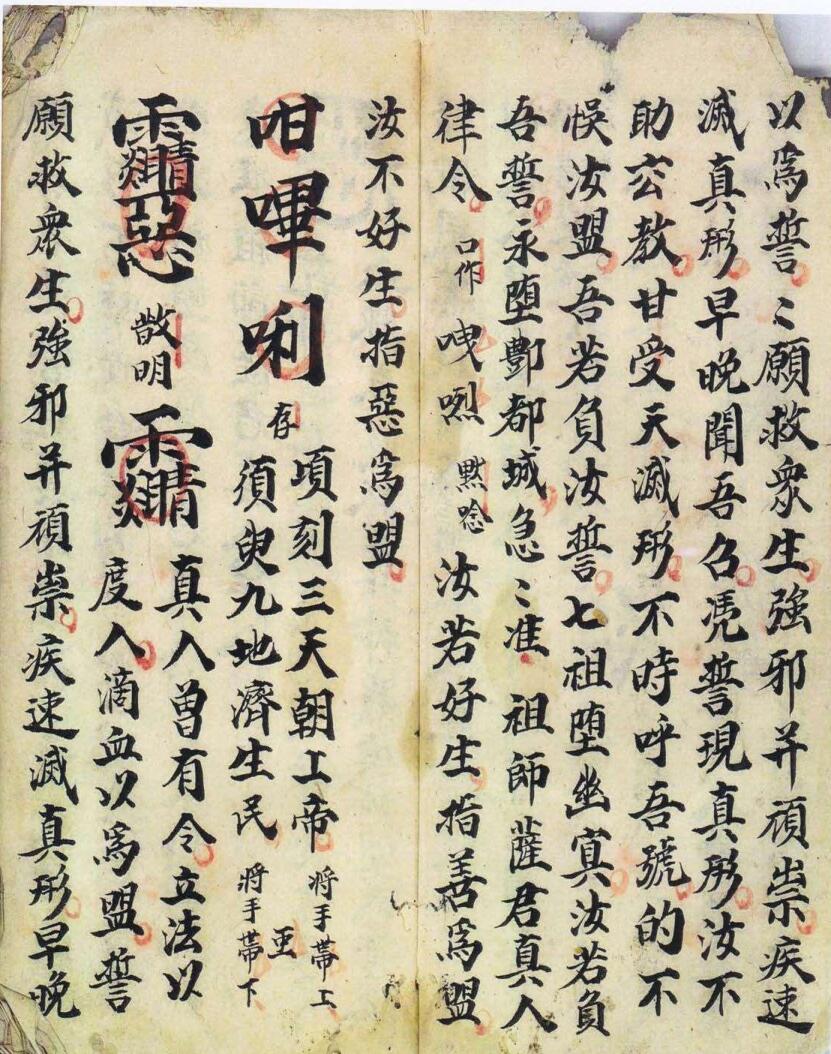 以爲誓〻願救衆生強邪并頑祟疾速
滅真形早晚聞吾召凴誓現真形汝不
助玄教甘受天滅形不時呼吾號的不
悮汝盟吾若負汝誓七祖墮幽冥汝若負
吾誓永墮酆都城急〻准 祖師薩君真人
律令 口作 黙唸 汝若好生指善爲盟
汝不好生指惡爲盟
咁嗶唎 存
頃刻三天朝工帝 將手帶工
至
須臾九地濟生民 將手帶下
惡 散明
真人曾有令立法以
度人滴血以爲盟誓
願救衆生強邪并頑祟疾速滅真形早晚